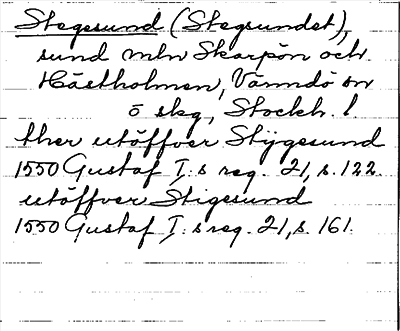 Stegesund (Stegsundet),
sund mln Skarpön och
Hästholmen, Värmdö sn
ö skg, Stockh. l.
ther utöffver Stÿgesund
1550 Gustaf I:s reg. 21, s. 122.
utöffver Stigesund
1550 Gustaf I:s reg. 21, s. 161.